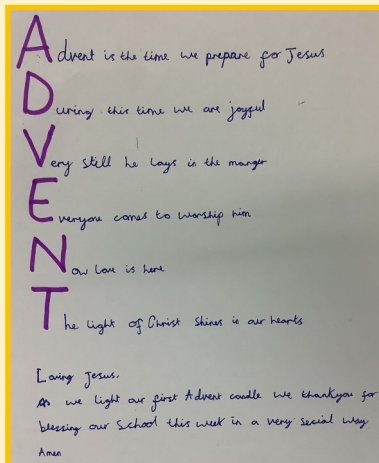 Advent is the time we prepare for Jesus
During this time we are joyful
Very still he lays in the manger
Everyone comes to worship him
Now Love is here
The light of Christ shines in our hearts
Loving Jesus.
As we light our first Advent candle we thankyou for
blessing our School this week in a very secial way
Amen